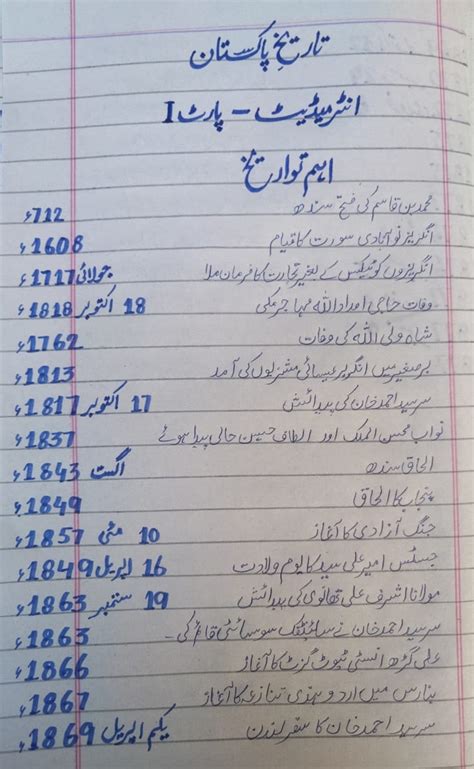 تاریخِ پاکستان
انٹرمیڈیٹ - پارٹ I
اہم تواریخ
محمد بن قاسم کی فتح سندھ 712ء
انگریز نوآبادی سورت کا قیام 1608ء
انگریزوں کو ٹیکس کے بغیر تجارت کا فرمان ملا جولائی 1717ء
وفات حاجی امداد اللہ مہاجر مکی 18 اکتوبر 1818ء
شاہ ولی اللہ کی وفات 1762ء
برصغیر میں انگریز عیسائی مشنریوں کی آمد 1813ء
سرسید احمد خان کی پیدائش 17 اکتوبر 1817ء
نواب محسن الملک اور الطاف حسین حالی پیدا ہوئے 1837ء
الحاق سندھ اگست 1843ء
پنجاب کا الحاق 1849ء
جنگ آزادی کا آغاز 10 مئی 1857ء
جسٹس امیر علی سید کا یوم ولادت 16 اپریل 1849ء
مولانا اشرف علی تھانوی کی پیدائش 19 ستمبر 1863ء
سرسید احمد خان نے سائنٹفک سوسائٹی قائم کی - 1863ء
علی گڑھ انسٹی ٹیوٹ گزٹ کا آغاز 1866ء
بنارس میں اردو ہندی تنازعہ کا آغاز 1867ء
سرسید احمد خان کا سفر لندن یکم اپریل 1869ء